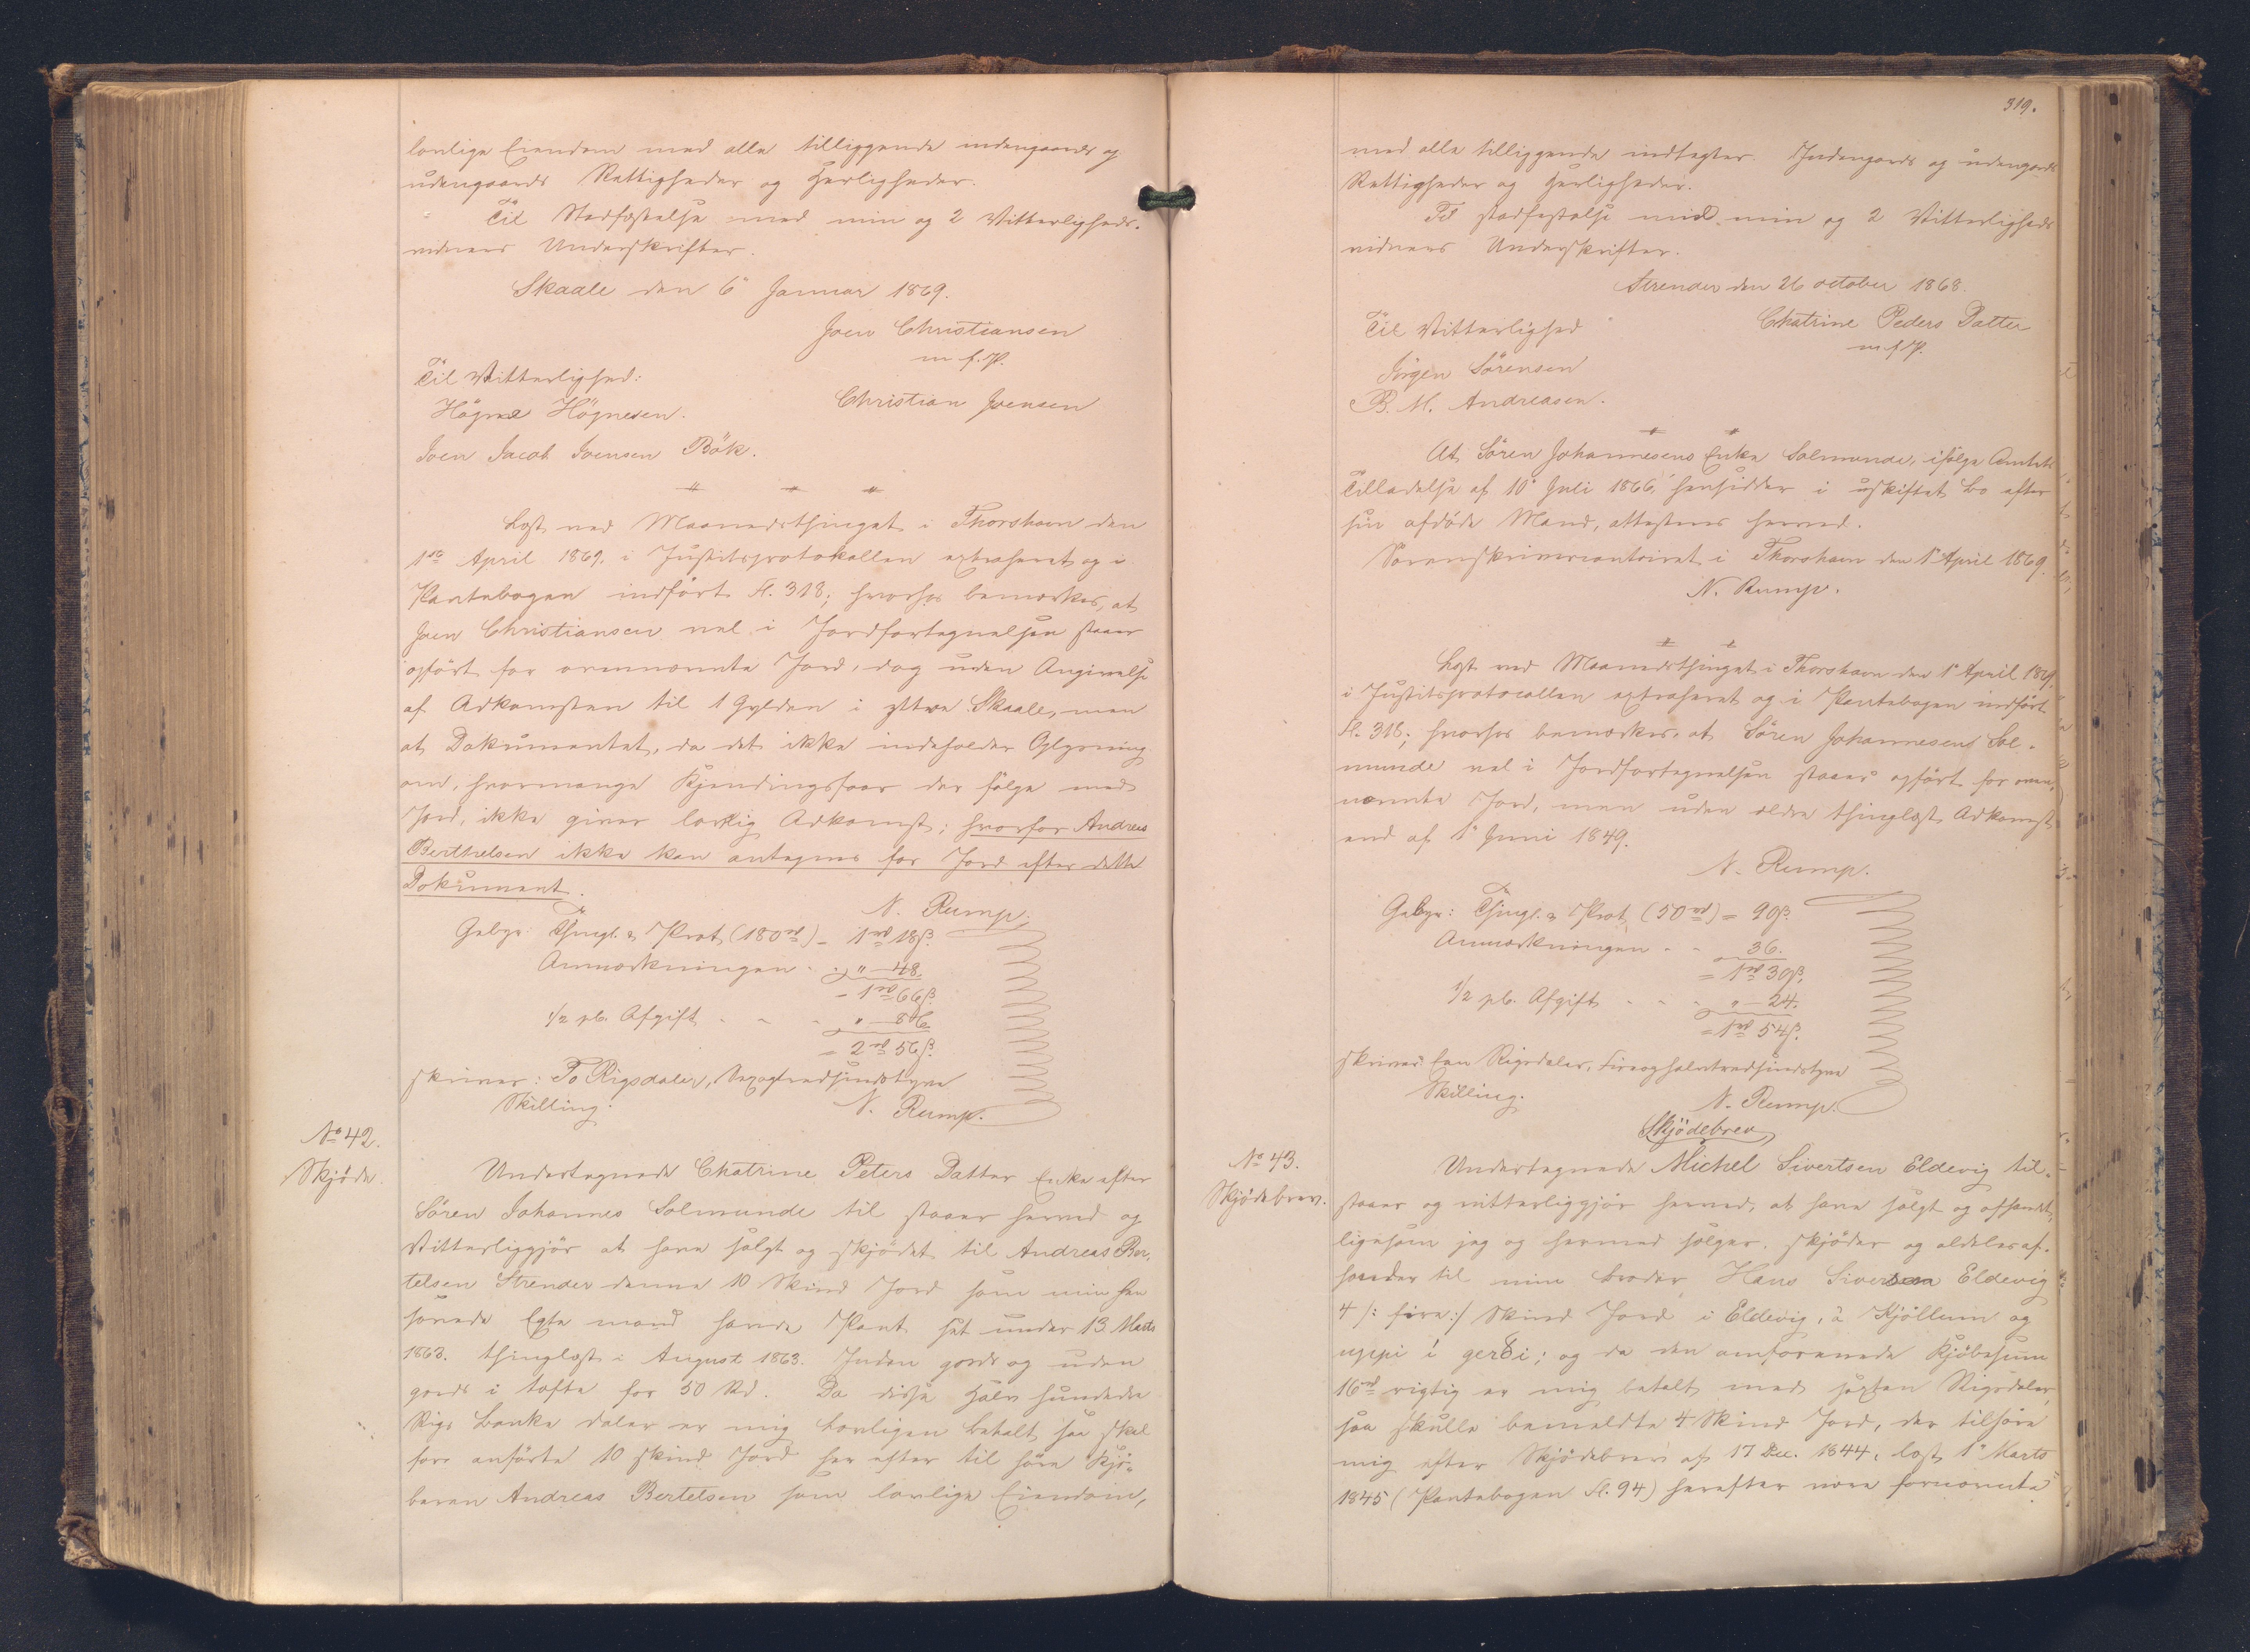 lovlige Eiendom med alle tilliggende indengaards og
udengaards Rettigheder og Herligheder.
Til Stadfæstelse med min og 2 Vitterligheds-
vidners Underskrifter.
Skaale den 6te Januar 1869.
Joen Christiansen
m. f. P.
Til Vitterlighed:
Christian Joensen
Högne Högnesen.
Joen Jacob Joensen Bök.
Læst ved Maanedsthinget i Thorshavn den
1ste April 1869. i Justitsprotokollen extraheret og i
Pantebogen indført fl. 318; hvorhos bemærkes, at
Joen Christiansen vel i Jordfortegnelsen staaer
opført for ovennævnte Jord, dog uden Angivelse
af Adkomsten til 1 Gylden i yttre Skaale, men
at Dokumentet, da det ikke indeholder Oplysning
om, hvormange Kjendingsfaar der følge med
Jord, ikke giver lovlig Adkomst; hvorfor Andreas
Berthelsen ikke kan antegnes for Jord efter dette
Dokument.
N. Rump.
Gebyr: Thingl. & Prot. (180 rd) - 1 rd 18 ß.
Anmærkningen - " - 48.
- 1 rd 66 ß.
1/2 pCt. Afgift - - - " - 86.
= 2 rd 56 ß.
skriver: To Rigsdaler, Sexoghalvtredsindstyve
Skilling.
N. Rump.
No 42.
Skjøde.
Undertegnede Chatrine Peters Datter Enke efter
Sören Johannes Solmunde til staaer herved og
Vitterliggjør at have solgt og skjødet til Andreas Ber-
telsen Strender denne 10 Skind Jord som min hen
sovede Egte mand havde Pant sat under 13 Marts
1863. thinglæst i August 1863. Inden gards og uden
gards i tofte for 50 Rd. Da disse Halv hundrede
Rigs banke daler er mig lovligen betalt saa skal
for anførte 10 skind Jord her efter til høre Kjø-
beren Andreas Bertelsen som lovlige Eiendom,
319.
med alle tilliggende indtægter. Indengards og udengards
Rettigheder og Herligheder.
Til stadfæstelse med min og 2 Vitterligheds
vidners Underskrifter.
Strender den 26 october 1868.
Til Vitterlighed
Chatrine Peders Datter
m f P.
Jörgen Sörensen
B. M. Andreasen.
At Sören Johannesens Enke Solmunde, ifølge Amtets
Tilladelse af 10de Juli 1866, hensidder i uskiftet Bo efter
sin afdøde Mand, attesteres herved.
Sorenskrivercontoiret i Thorshavn den 1ste April 1869.
N. Rump.
Læst ved Maanedsthinget i Thorshavn den 1ste April 1869.
i Justitsprotocollen extraheret og i Pantebogen indført
fl. 318; hvorhos bemærkes, at Sören Johannesen Sol-
munde vel i Jordfortegnelsen staaer opført for oven-
nævnte Jord, men uden ældre thinglæst Adkomst
end af 1ste Juni 1849.
N. Rump.
Gebyr: Thingl. & Prot. (50 rd) = 90 ß.
Anmærkningen - - 36.
= 1 rd 30 ß.
1/2 pCt. Afgift - - - " - 24.
= 1 rd 54 ß.
skriver: Een Rigsdaler, Fireoghalvtredsindstyve
Skilling.
N. Rump.
Skjödebrev
No 43.
Skjödebrev.
Undertegnede Michel Sivertsen Eldevig til-
staaer og vitterliggjør herved, at have solgt og afhændet,
ligesom jeg og hermed sælger, skjøder og aldeles af-
hænder til min Broder Hans Sivertsen Eldevig
4 /: fire :/ Skind Jord i Eldevig, á Kjöllum og
uppi í gerði; og da den omforenede Kjøbesum
16 rd rigtig er mig betalt med sexten Rigsdaler,
saa skulle bemeldte 4 Skind Jord, der tilhøre
mig efter Skjödebrev af 17 Dec. 1844, læst 1ste Marts
1845 (Pantebogen fl. 94) herefter være fornævnte